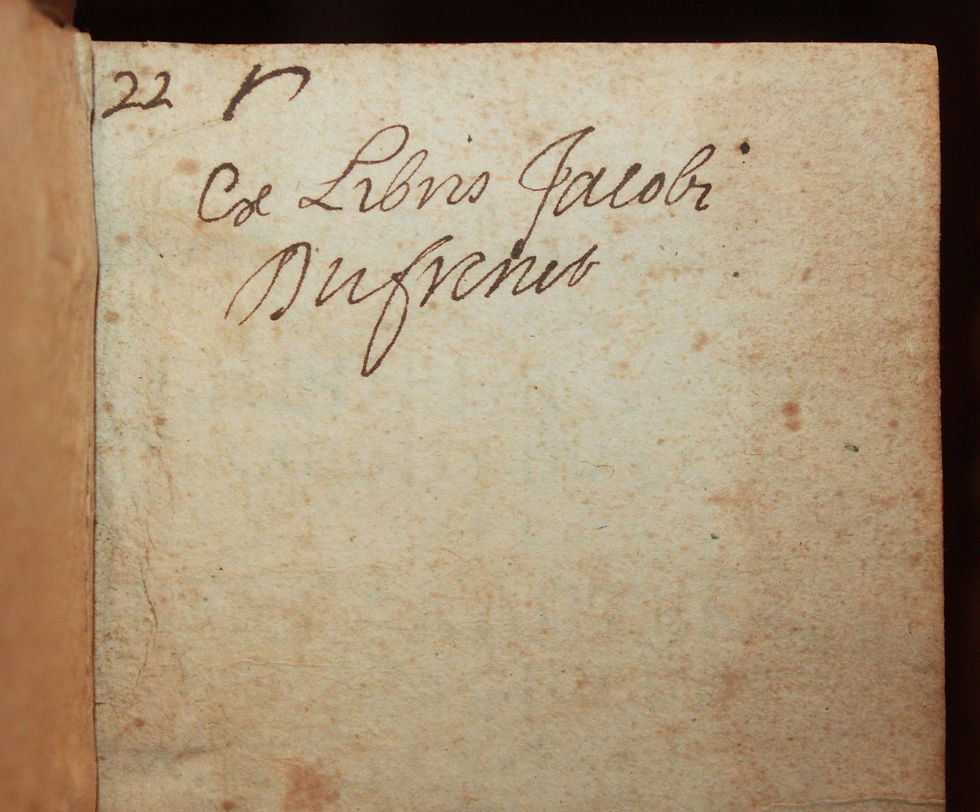 22 r
Ex Libris Jacobi
Dufreneb